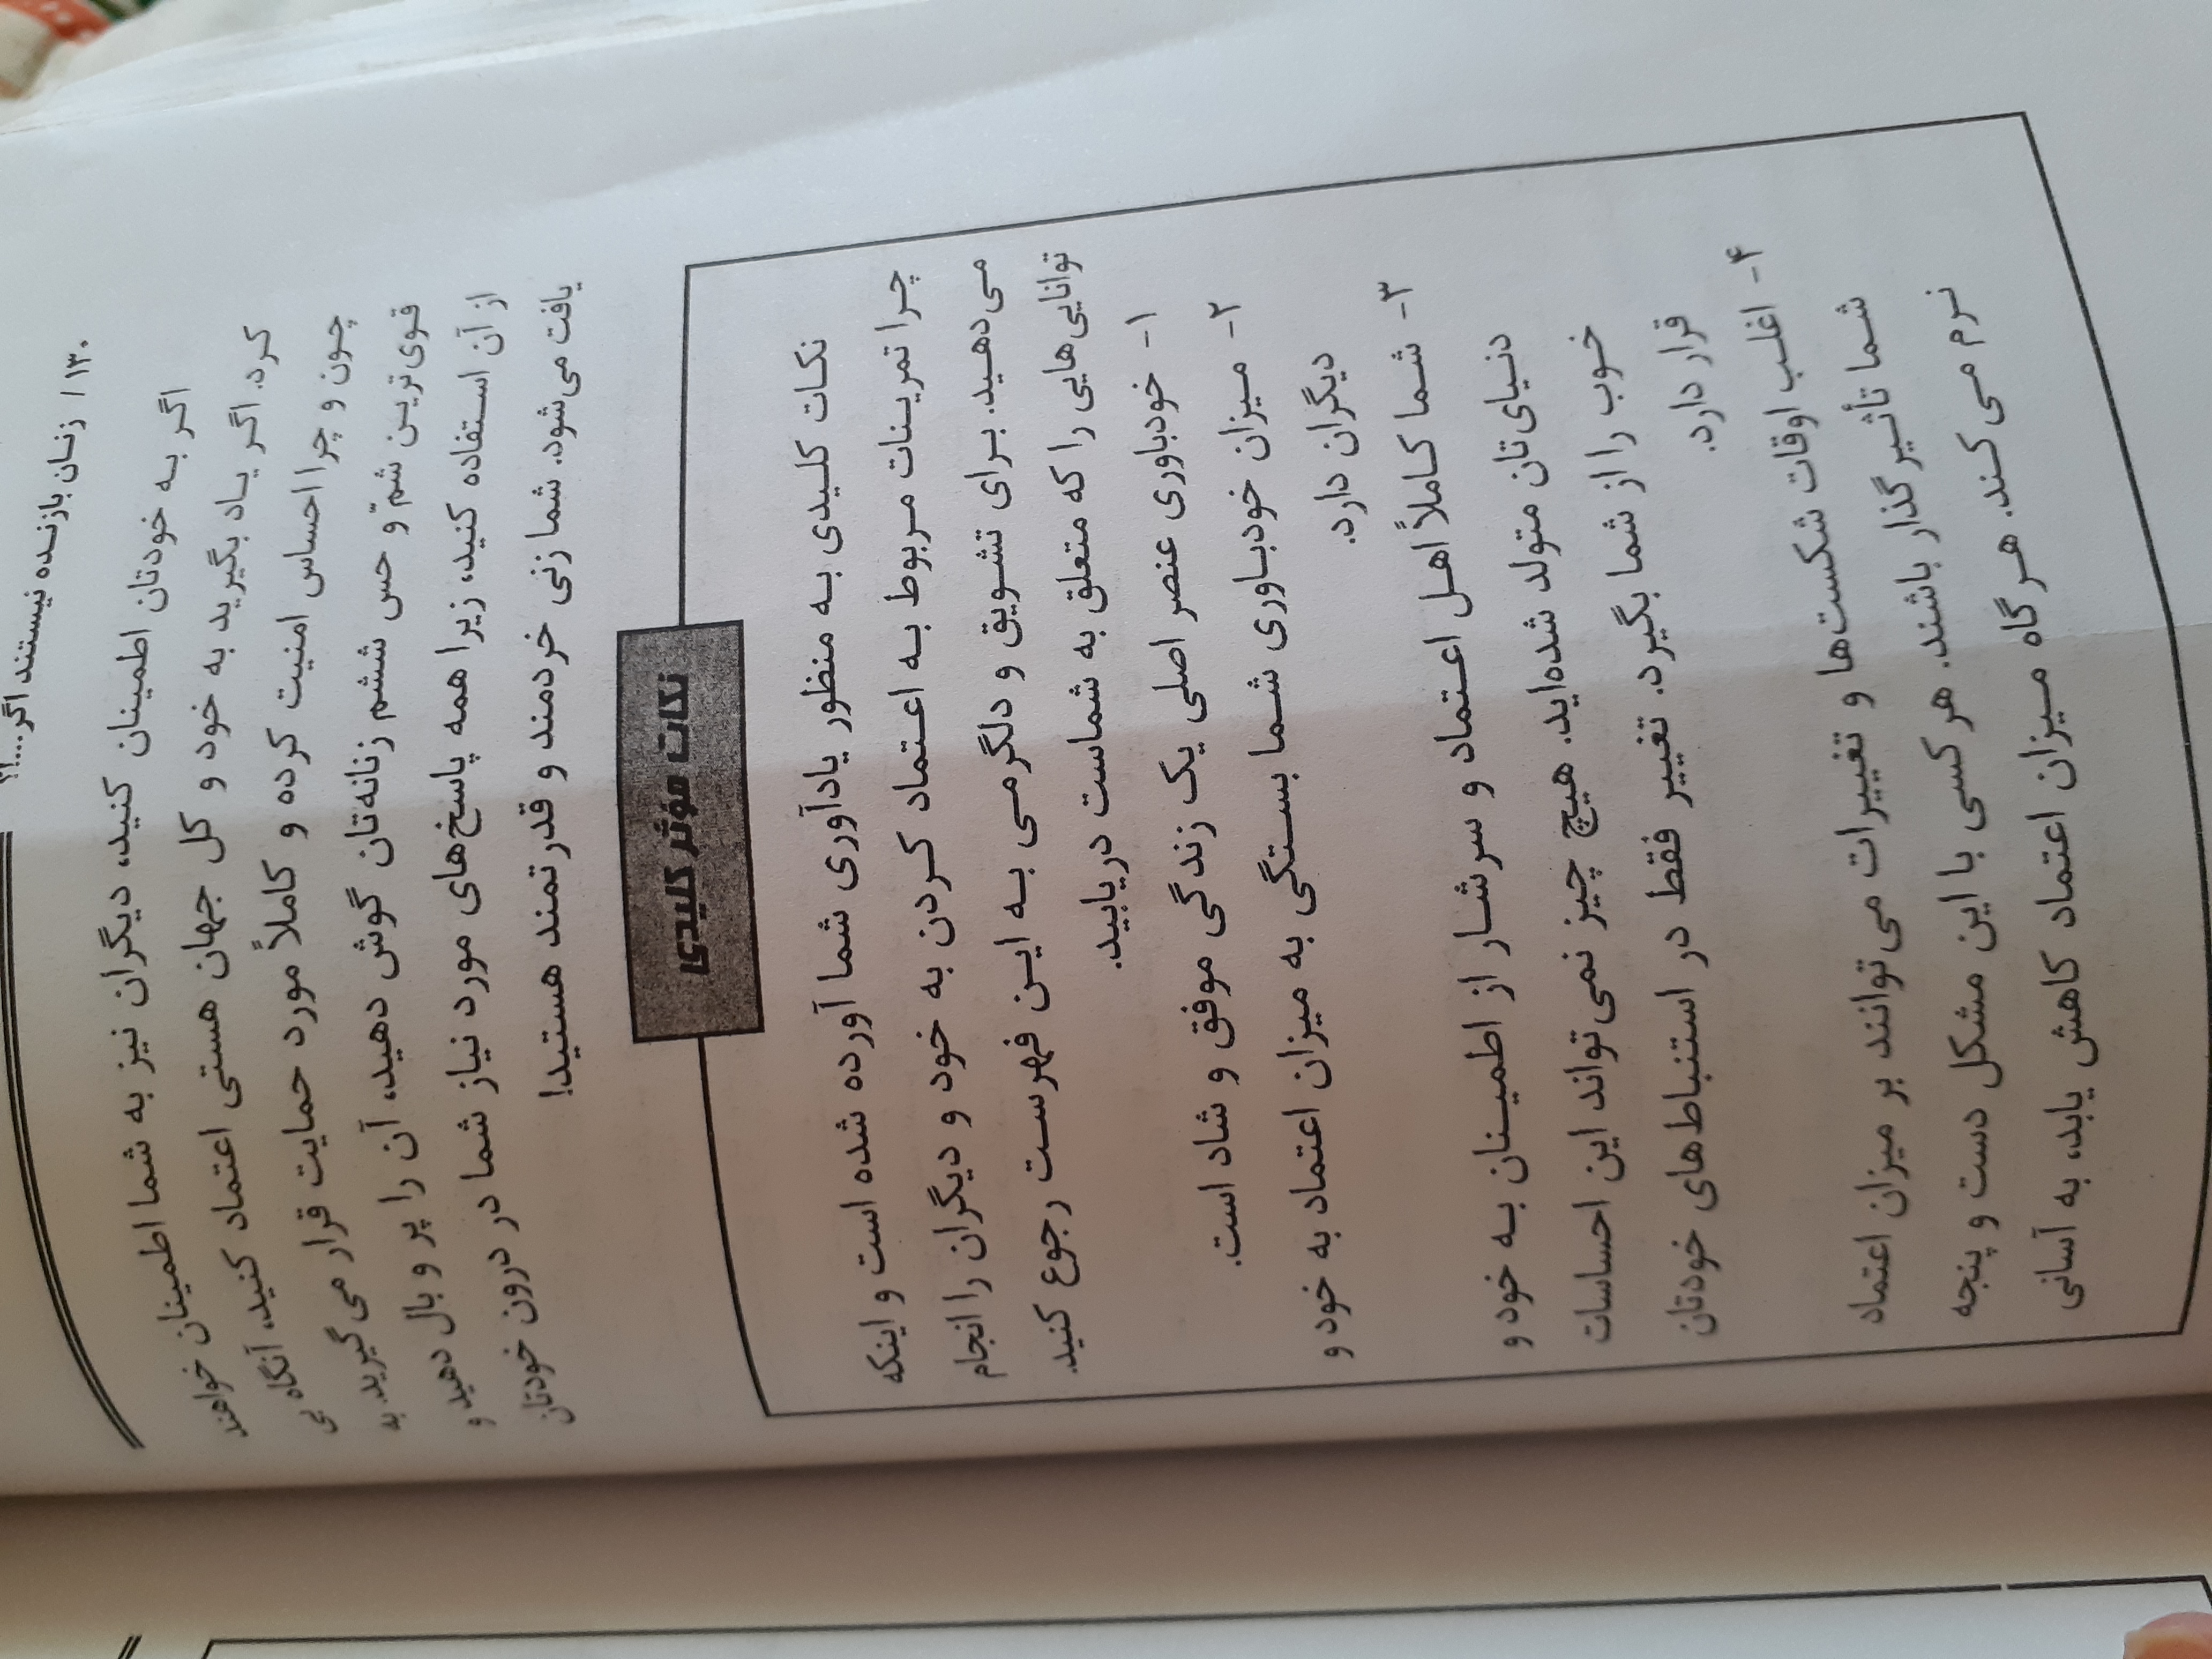 ۱۳۰ / زنان بازنده نیستند اگر...!؟
اگر به خودتان اطمینان کنید، دیگران نیز به شما اطمینان خواهند
کرد. اگر یاد بگیرید به خود و کل جهان هستی اعتماد کنید، آنگاه بی
چون و چرا احساس امنیت کرده و کاملاً مورد حمایت قرار می‌گیرید. به
قوی‌ترین شمّ و حس ششم زنانه‌تان گوش دهید، آن را پر و بال دهید و
از آن استفاده کنید، زیرا همه پاسخ‌های مورد نیاز شما در درون خودتان
یافت می‌شود. شما زنی خردمند و قدرتمند هستید!
نکات مؤثر کلیدی
نکات کلیدی به منظور یادآوری شما آورده شده است و اینکه
چرا تمرینات مربوط به اعتماد کردن به خود و دیگران را انجام
می‌دهید. برای تشویق و دلگرمی به این فهرست رجوع کنید.
توانایی‌هایی را که متعلق به شماست دریابید.
۱- خودباوری عنصر اصلی یک زندگی موفق و شاد است.
۲- میزان خودباوری شما بستگی به میزان اعتماد به خود و
دیگران دارد.
۳- شما کاملاً اهل اعتماد و سرشار از اطمینان به خود و
دنیای‌تان متولد شده‌اید. هیچ چیز نمی‌تواند این احساسات
خوب را از شما بگیرد. تغییر فقط در استنباط‌های خودتان
قرار دارد.
۴- اغلب اوقات شکست‌ها و تغییرات می‌توانند بر میزان اعتماد
شما تأثیرگذار باشند. هر کسی با این مشکل دست و پنجه
نرم می‌کند. هرگاه میزان اعتماد کاهش یابد، به آسانی